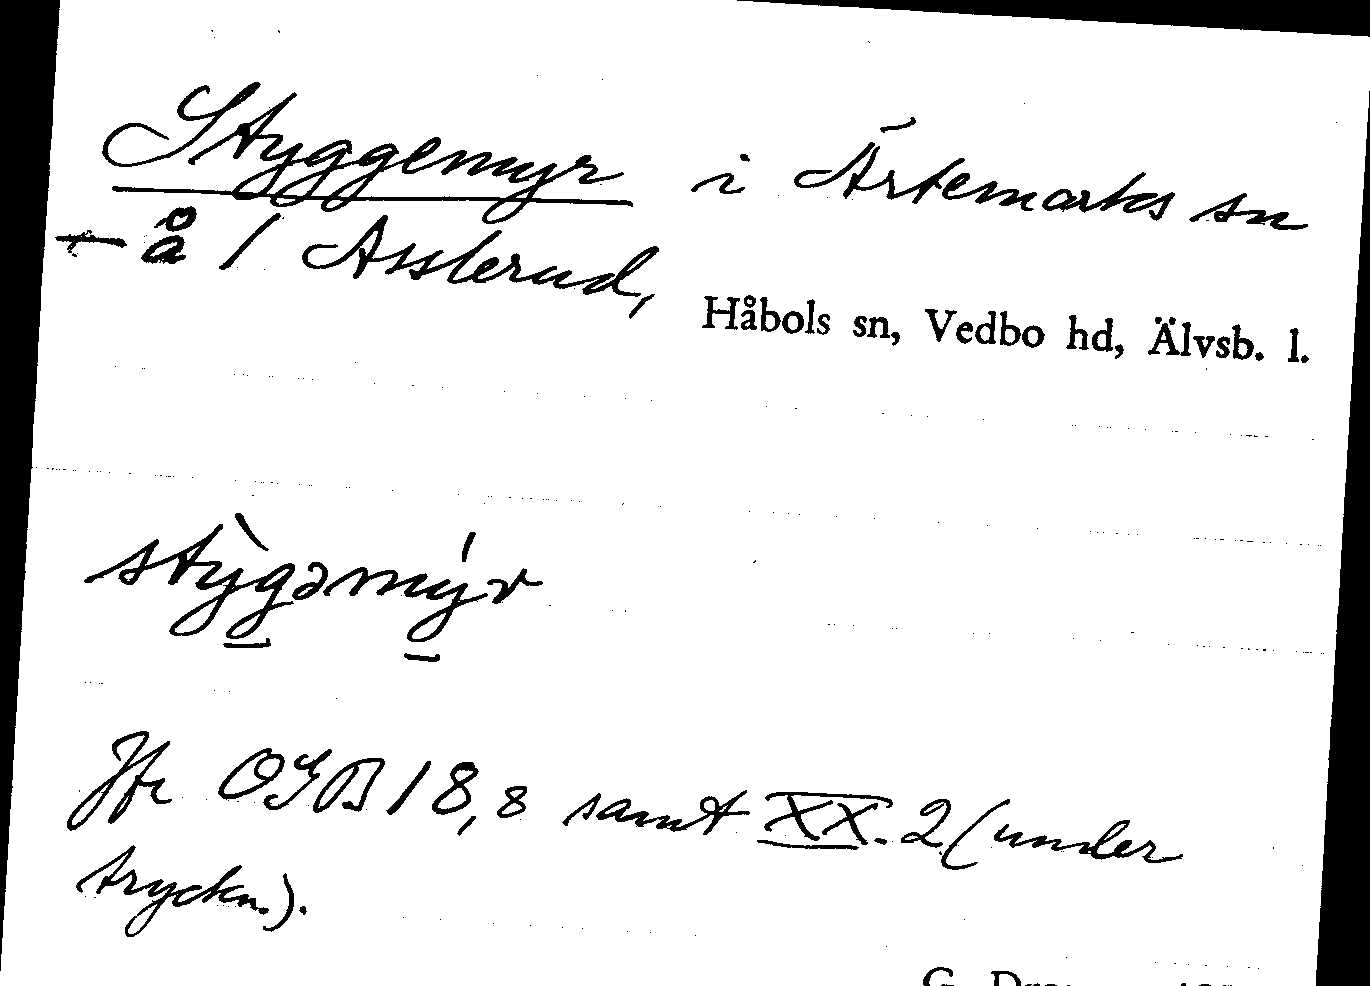 Styggemyr i Ärtemarks sn
å 1 Asslerud,
Håbols sn, Vedbo hd, Älvsb. l.
stỳgəmýr
Jfr OGB 18,8 samt XX.2 (under
tryckn.).
G.